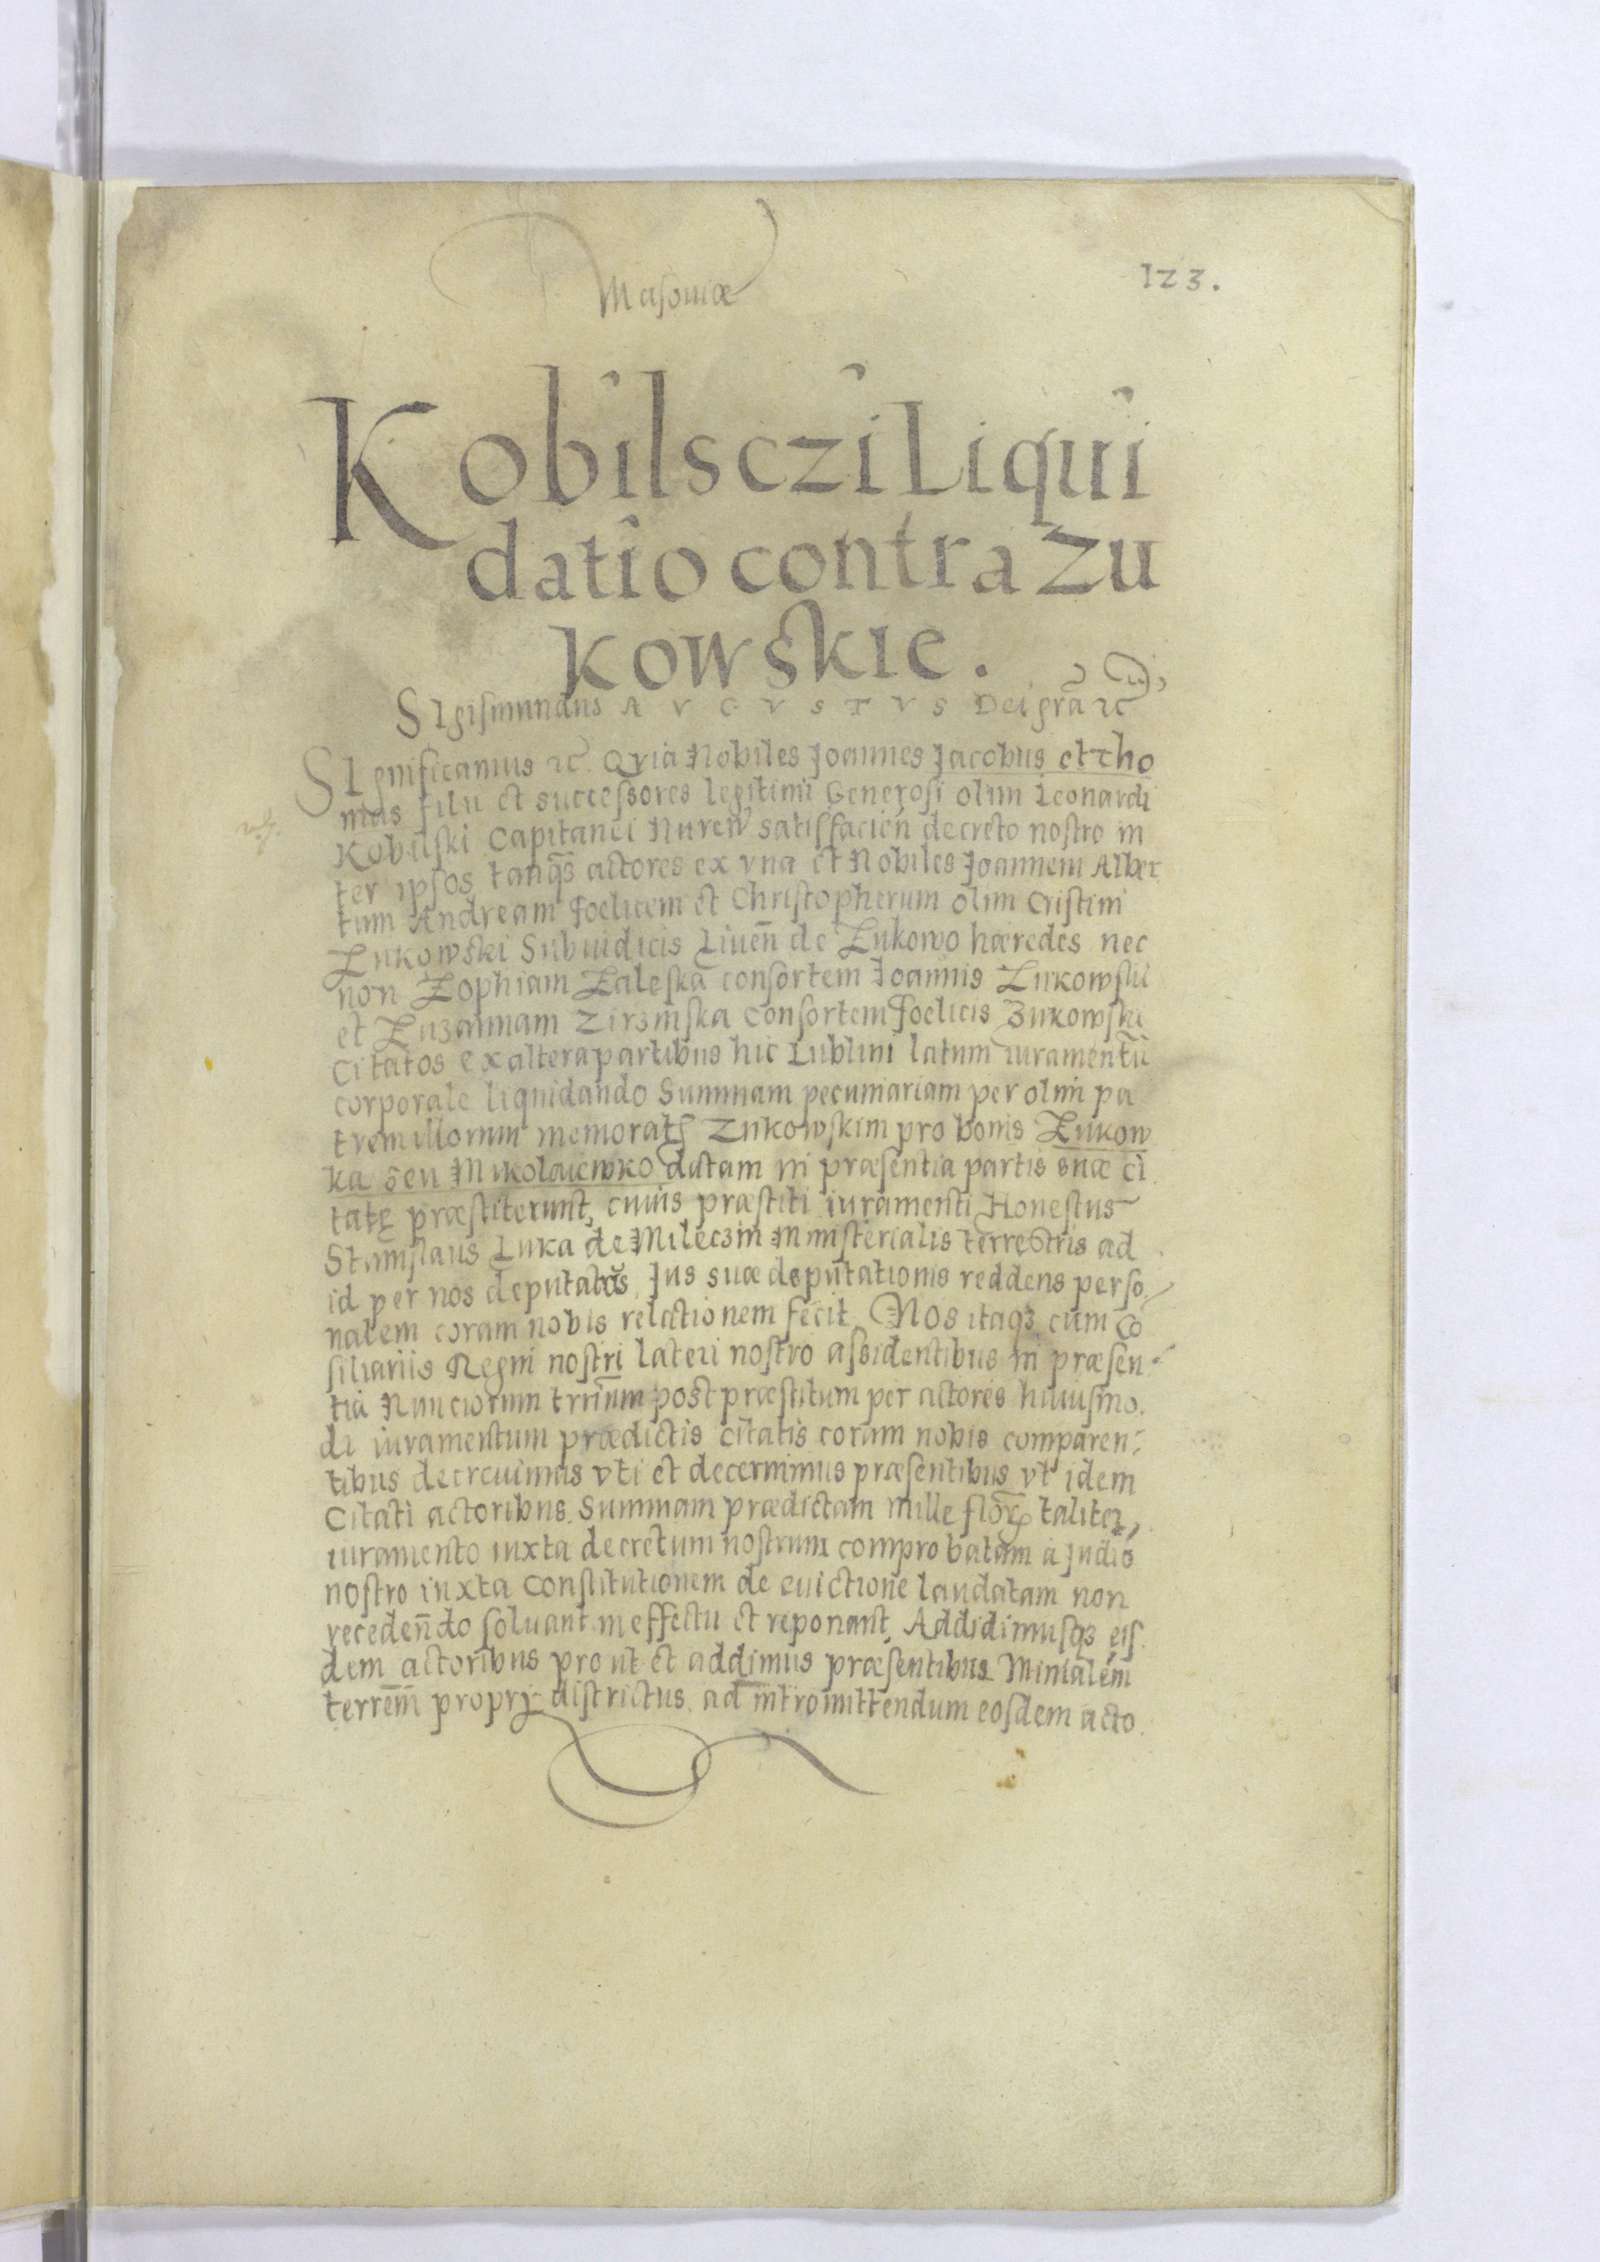 Masoviæ
123.
Kobilsczi Liqui
datio contra Zu
kowskie.
SIgismundus AVGVSTVS Dei grã ꝛc̃
SIgnificamus ꝛc̃. Qvia Nobiles Joannes Jacobus et Tho
mas filii et successores legitimi Generosi olim Leonardi
Kobilski Capitanei Nureñ satisfacieñ decreto nostro in
ter ipsos tanq̃s actores ex vna et Nobiles Joannem Alber
tum Andream Foelicem et Christopherum olim Cristini
Zukowski Subiudicis Liueñ de Zukowo hæredes nec
non Zophiam Zaleska consortem Joannis Zukowski
et Zuzannam Zirzinska Consortem Foelicis Zukowski
Citatos ex altera partibus hic Lublini latum iuramentũ
corporale liquidando Summam pecuniariam per olim pa
trem illorum memoratꝭ Zukowskim pro bonis Zukow
ka seu Mikolaiewko datam in præsentia partis suæ ci
tatę præstiterunt, cuius præstiti iuramenti Honestus
Stanislaus Luka de Mileczin Ministerialis terrestris ad
id per nos deputatus, Jus suæ deputationis reddens perso
nalem coram nobis relationem fecit. Nos itaqꝫ cum Cõ
siliariis Regni nostri lateri nostro assidentibus in præsen
tia Nunciorum trrium post præstitum per actores huiusmo
di iuramentum prædictis citatis coram nobis comparen
tibus decreuimus vti et decernimus præsentibus vt idem
Citati actoribus Summam prædictam mille florꝝ taliter
iuramento iuxta decretum nostrum comprobatam à Judió
nostro iuxta Constitutionem de euictione laudatam non
recedeñdo soluant in effectu et reponant, Addidimusqꝫ eis
dem actoribus prout et addimus præsentibus Minlalem
terrem̃ proprÿ districtus ad intromittendum eosdem acto